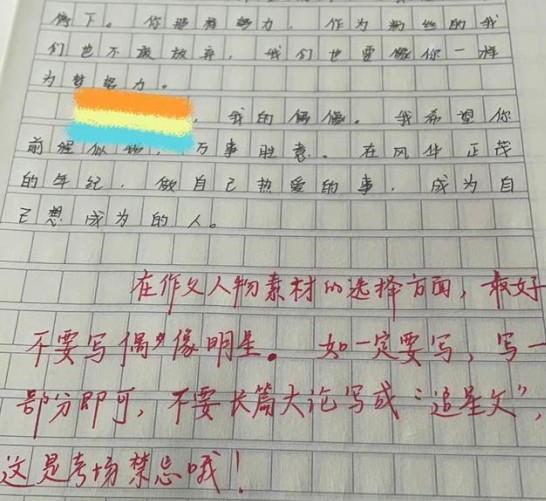 停下。你那样努力，作为粉丝的我
们也不敢放弃，我们也要像你一样
为梦努力。
，我的偶像。我希望你
前程似锦，万事胜意。在风华正茂
的年纪，做自己热爱的事，成为自
己想成为的人。
在作文人物素材的选择方面，最好
不要写偶像明星。如一定要写，写一
部分即可，不要长篇大论写成“追星文”，
这是考场禁忌哦！